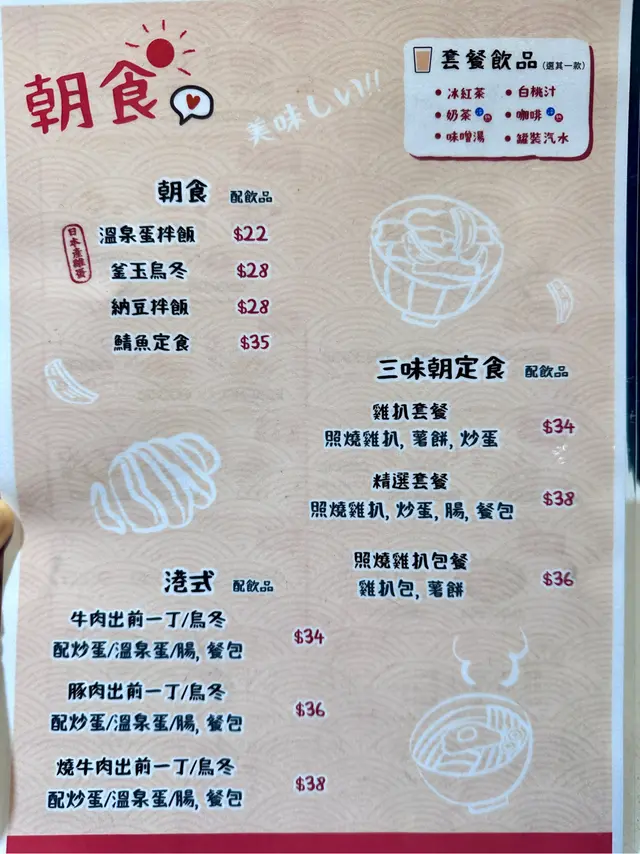 朝食
美味しい!!
套餐飲品 (選其一款)
• 冰紅茶 • 白桃汁
• 奶茶 • 咖啡
• 味噌湯 • 罐裝汽水
朝食 配飲品
日本產雞蛋
溫泉蛋拌飯 $22
釜玉烏冬 $28
納豆拌飯 $28
鯖魚定食 $35
三味朝定食 配飲品
雞扒套餐
照燒雞扒, 薯餅, 炒蛋 $34
精選套餐
照燒雞扒, 炒蛋, 腸, 餐包 $38
照燒雞扒包餐
雞扒包, 薯餅 $36
港式 配飲品
牛肉出前一丁/烏冬
配炒蛋/溫泉蛋/腸, 餐包 $34
豚肉出前一丁/烏冬
配炒蛋/溫泉蛋/腸, 餐包 $36
燒牛肉出前一丁/烏冬
配炒蛋/溫泉蛋/腸, 餐包 $38